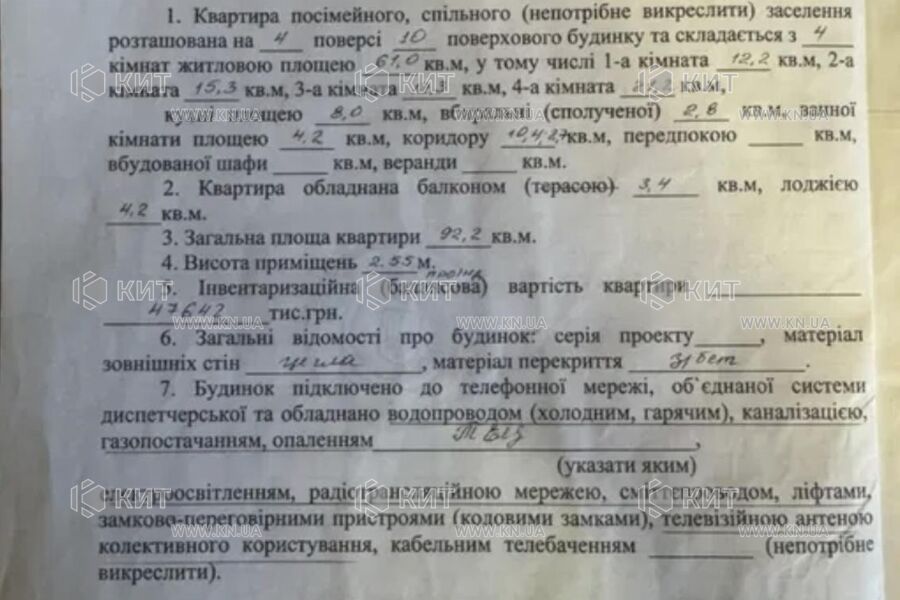 1. Квартира посімейного, спільного (непотрібне викреслити) заселення
розташована на 4 поверсі 10 поверхового будинку та складається з 4
кімнат житловою площею 61,0 кв.м, у тому числі 1-а кімната 12,2 кв.м, 2-а
кімната 15,3 кв.м, 3-а кімната кв.м, 4-а кімната кв.м,
кухні площею 8,0 кв.м, вбиральні (сполученої) 2,8 кв.м, ванної
кімнати площею 4,2 кв.м, коридору 10,4 2,7 кв.м, передпокою кв.м,
вбудованої шафи кв.м, веранди кв.м.
2. Квартира обладнана балконом (терасою) 3,4 кв.м, лоджією
4,2 кв.м.
3. Загальна площа квартири 92,2 кв.м.
4. Висота приміщень 2.55 м.
5. Інвентаризаційна (балансова) вартість квартири
47642 тис.грн.
6. Загальні відомості про будинок: серія проекту, матеріал
зовнішніх стін цегла, матеріал перекриття з/бет.
7. Будинок підключено до телефонної мережі, об`єднаної системи
диспетчерської та обладнано водопроводом (холодним, гарячим), каналізацією,
газопостачанням, опаленням ТЕЦ,
(указати яким)
електроосвітленням, радіотрансляційною мережею, сміттєпроводом, ліфтами,
замково-переговірними пристроями (кодовими замками), телевізійною антеною
колективного користування, кабельним телебаченням (непотрібне
викреслити).
КИТ
WWW.KN.UA
КИТ
WWW.KN.UA
КИТ
WWW.KN.UA
КИТ
WWW.KN.UA
КИТ
WWW.KN.UA
КИТ
WWW.KN.UA
КИТ
WWW.KN.UA
КИТ
WWW.KN.UA
КИТ
WWW.KN.UA